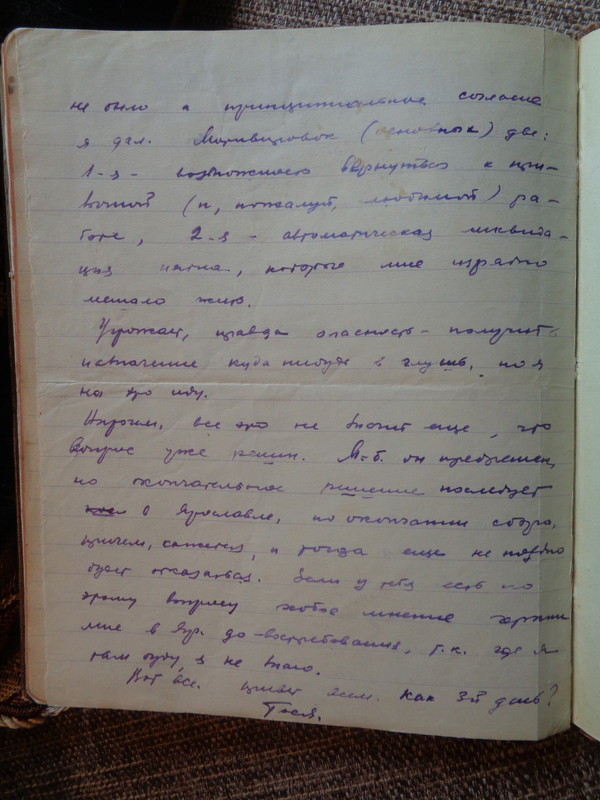 не было и принципиальное согласие
я дал. Мотивировок (основных) две:
1-я - возможность вернуться к при-
вычной (и, пожалуй, любимой) ра-
боте, 2-я - автоматическая ликвида-
ция пятна, которое мне изрядно
мешало жить.
Угрожает, правда опасность - получить
назначение куда нибудь в глушь, но я
на это иду.
Впрочем, все это не значит еще, что
вопрос уже решен. М-б. он предрешен,
но окончательное решение последует
в Ярославле, по окончании сбора,
причем, кажется, и тогда еще не поздно
будет отказаться. Если у тебя есть по
этому вопросу особое мнение черкни
мне в Яр. до-востребования, т.к. где я
там буду, я не знаю.
Вот все. Привет всем. Как 3й день?